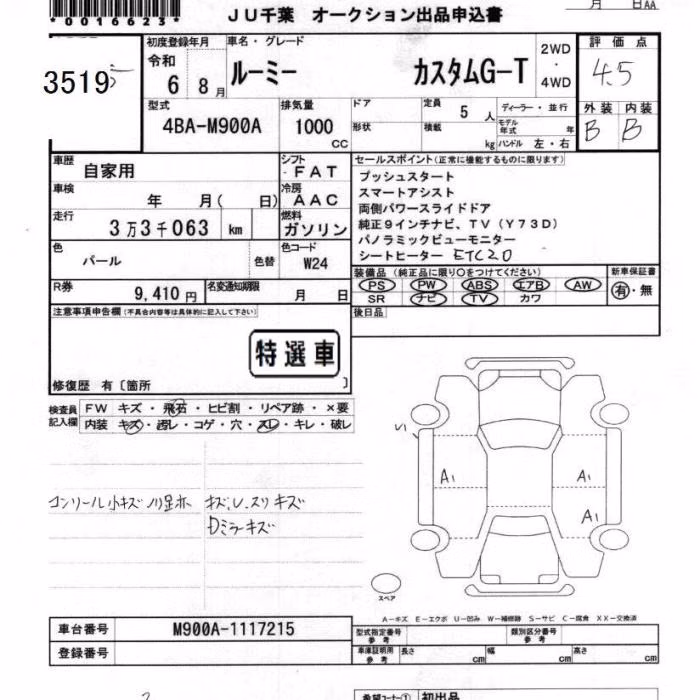 *0016623*
月 日AA
JU千葉 オークション出品申込書
3519
初度登録年月
令和
6 8月
車名・グレード
ルーミー カスタムG-T
2WD
・
4WD
評価点
4.5
外装 内装
B B
型式
4BA-M900A
排気量
1000
CC
ドア
形状
定員 5 人
積載 kg
ディーラー・並行
モデル年式 年
ハンドル 左・右
車歴 自家用
車検 年 月( 日)
走行 3万3千063 km
色 パール 色替
シフト
FAT
冷房
AAC
燃料
ガソリン
色コード
W24
セールスポイント(正常に機能するものに限ります)
プッシュスタート
スマートアシスト
両側パワースライドドア
純正9インチナビ、TV(Y73D)
パノラミックビューモニター
シートヒーター ETC20
R券 9,410円
名変通知期限 月 日
装備品(純正品に限り○をつけてください)
PS PW ABS エアB AW
SR ナビ TV カワ
新車保証書
有・無
後日品
注意事項申告欄(不具合内容等は具体的に記入して下さい)
特選車
修復歴 有〔箇所 〕
検査員記入欄
FW キズ・飛石・ヒビ割・リペア跡・×要
内装 キズ・汚レ・コゲ・穴・スレ・キレ・破レ
キズ、U、スリキズ
Dミラーキズ
A1
A1
A1
スペア
A-キズ E-エクボ U-凹み W-補修跡 S-サビ C-腐食 XX-交換済
車台番号 M900A-1117215
登録番号
型式指定番号 参考
類別区分番号 参考
車庫証明用 参考 長さ cm 幅 cm 高さ cm
希望コーナー① 初出品